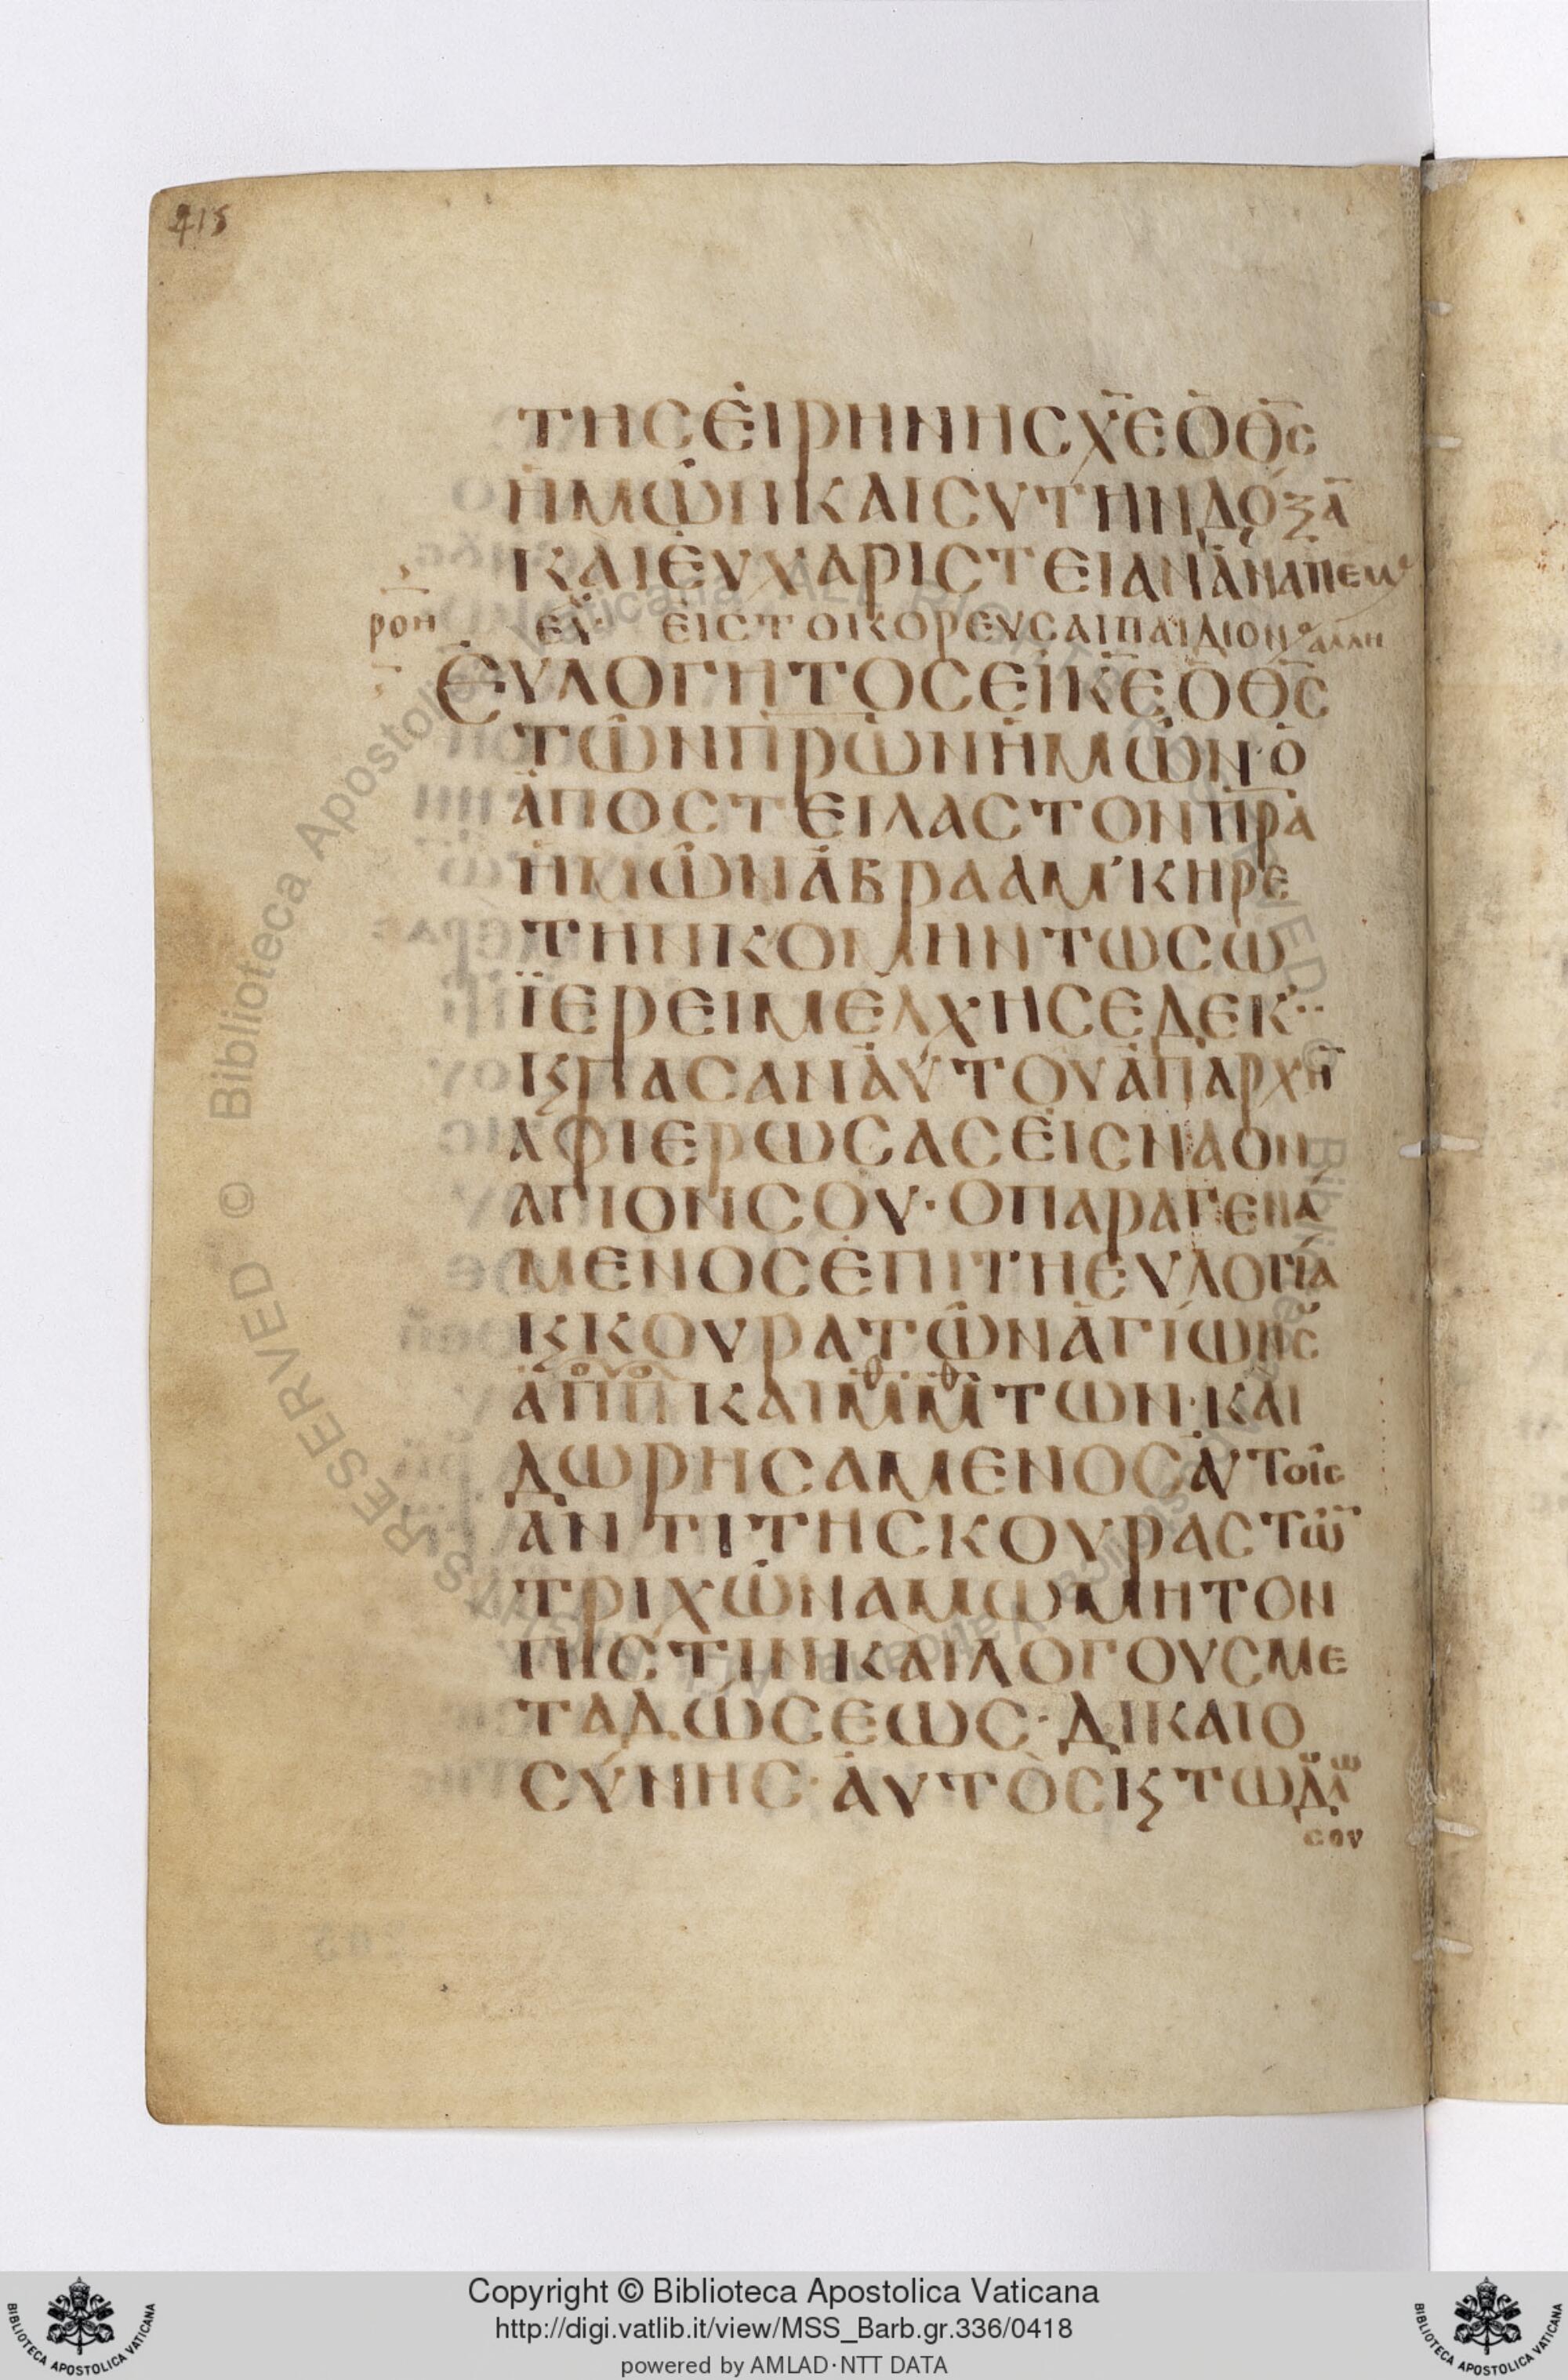 415
ΤΗCΕΙΡΗΝΗCΧ̅Ε̅ΟΘ̅C̅
ΗΜΩΝΚΑΙCΥΤΗΝΔΟΞΑ̅
ΚΑΙΕΥΧΑΡΙCΤΕΙΑΝΑΝΑΠΕΜ
ΕΥΧ ΕΙCΤΟΙΚΟΡΕΥCΑΙΠΑΙΔΙΟΝ ΑΛΛΗ
ΕΥΛΟΓΗΤΟCΕΙΚ̅Ε̅ΟΘ̅C̅
ΤΩΝΠ̅Ρ̅ΩΝΗΜΩΝ·Ο
ΑΠΟCΤΕΙΛΑCΤΟΝΠ̅Ρ̅Α
ΗΜΩΝΑΒΡΑΑΜ'ΚΗΡΕ
ΤΗΝΚΟΜΗΝΤΩCΩ
ΪΕΡΕΙΜΕΛΧΗCΕΔΕΚ··
Κ̣ΠΑCΑΝΑΥΤΟΥΑΠΑΡΧΗ̅
ΑΦΙΕΡΩCΑCΕΙCΝΑΟΝ
ΑΓΙΟΝCΟΥ·ΟΠΑΡΑΓΕΝΑ
ΜΕΝΟCΕΠΙΤΗΕΥΛΟΓΙΑ
ΚϚΚΟΥΡΑΤΩΝΑΓΙΩΝC
ΑΠΠΚΑΙΜΜΤΩΝ·ΚΑΙ
ΔΩΡΗCΑΜΕΝΟCΑΥΤΟΙC
ΑΝΤΙΤΗCΚΟΥΡΑCΤΩ̅
ΤΡΙΧΩΝΑΜΩΜΗΤΟΝ
ΠΗCΤΙΝΚΑΙΛΟΓΟΥCΜΕ
ΤΑΔΩCΕΩC·ΔΙΚΑΙΟ
CΥΝΗC·ΑΥΤΟCΚϚΤΩΔΛ
CΟΥ
Copyright © Biblioteca Apostolica Vaticana
http://digi.vatlib.it/view/MSS_Barb.gr.336/0418
powered by AMLAD·NTT DATA
BIBLIOTECA APOSTOLICA VATICANA
BIBLIOTECA APOSTOLICA VATICANA